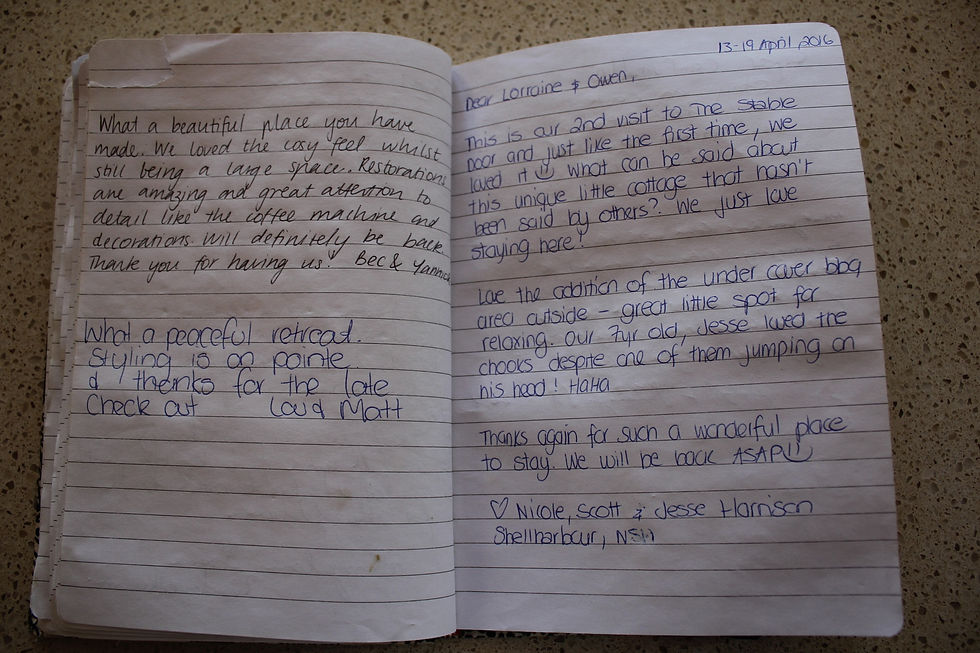 What a beautiful place you have
made. We loved the cosy feel whilst
still being a large space. Restorations
are amazing and great attention to
detail like the coffee machine and
decorations. Will definitely be back.
Thank you for having us! Bec & Yannick
What a peaceful retreat.
Styling is on pointe.
& thenks for the late
Check out Matt
13-19 April, 2016
Dear Lorraine & Owen,
This is our 2nd visit to The Stable
Door and just like the first time, we
loved it What can be said about
this unique little cottage that hasn't
been said by others? We just love
staying here!
Love the addition of the under cover bbq
area outside - great little spot for
relaxing. Our 7yr old, Jesse loved the
chooks despite one of them jumping on
his head! HaHa
Thanks again for such a wonderful place
to stay. We will be back ASAP
♡ Nicole, Scott & Jesse Harrison
Shellharbour, NSW